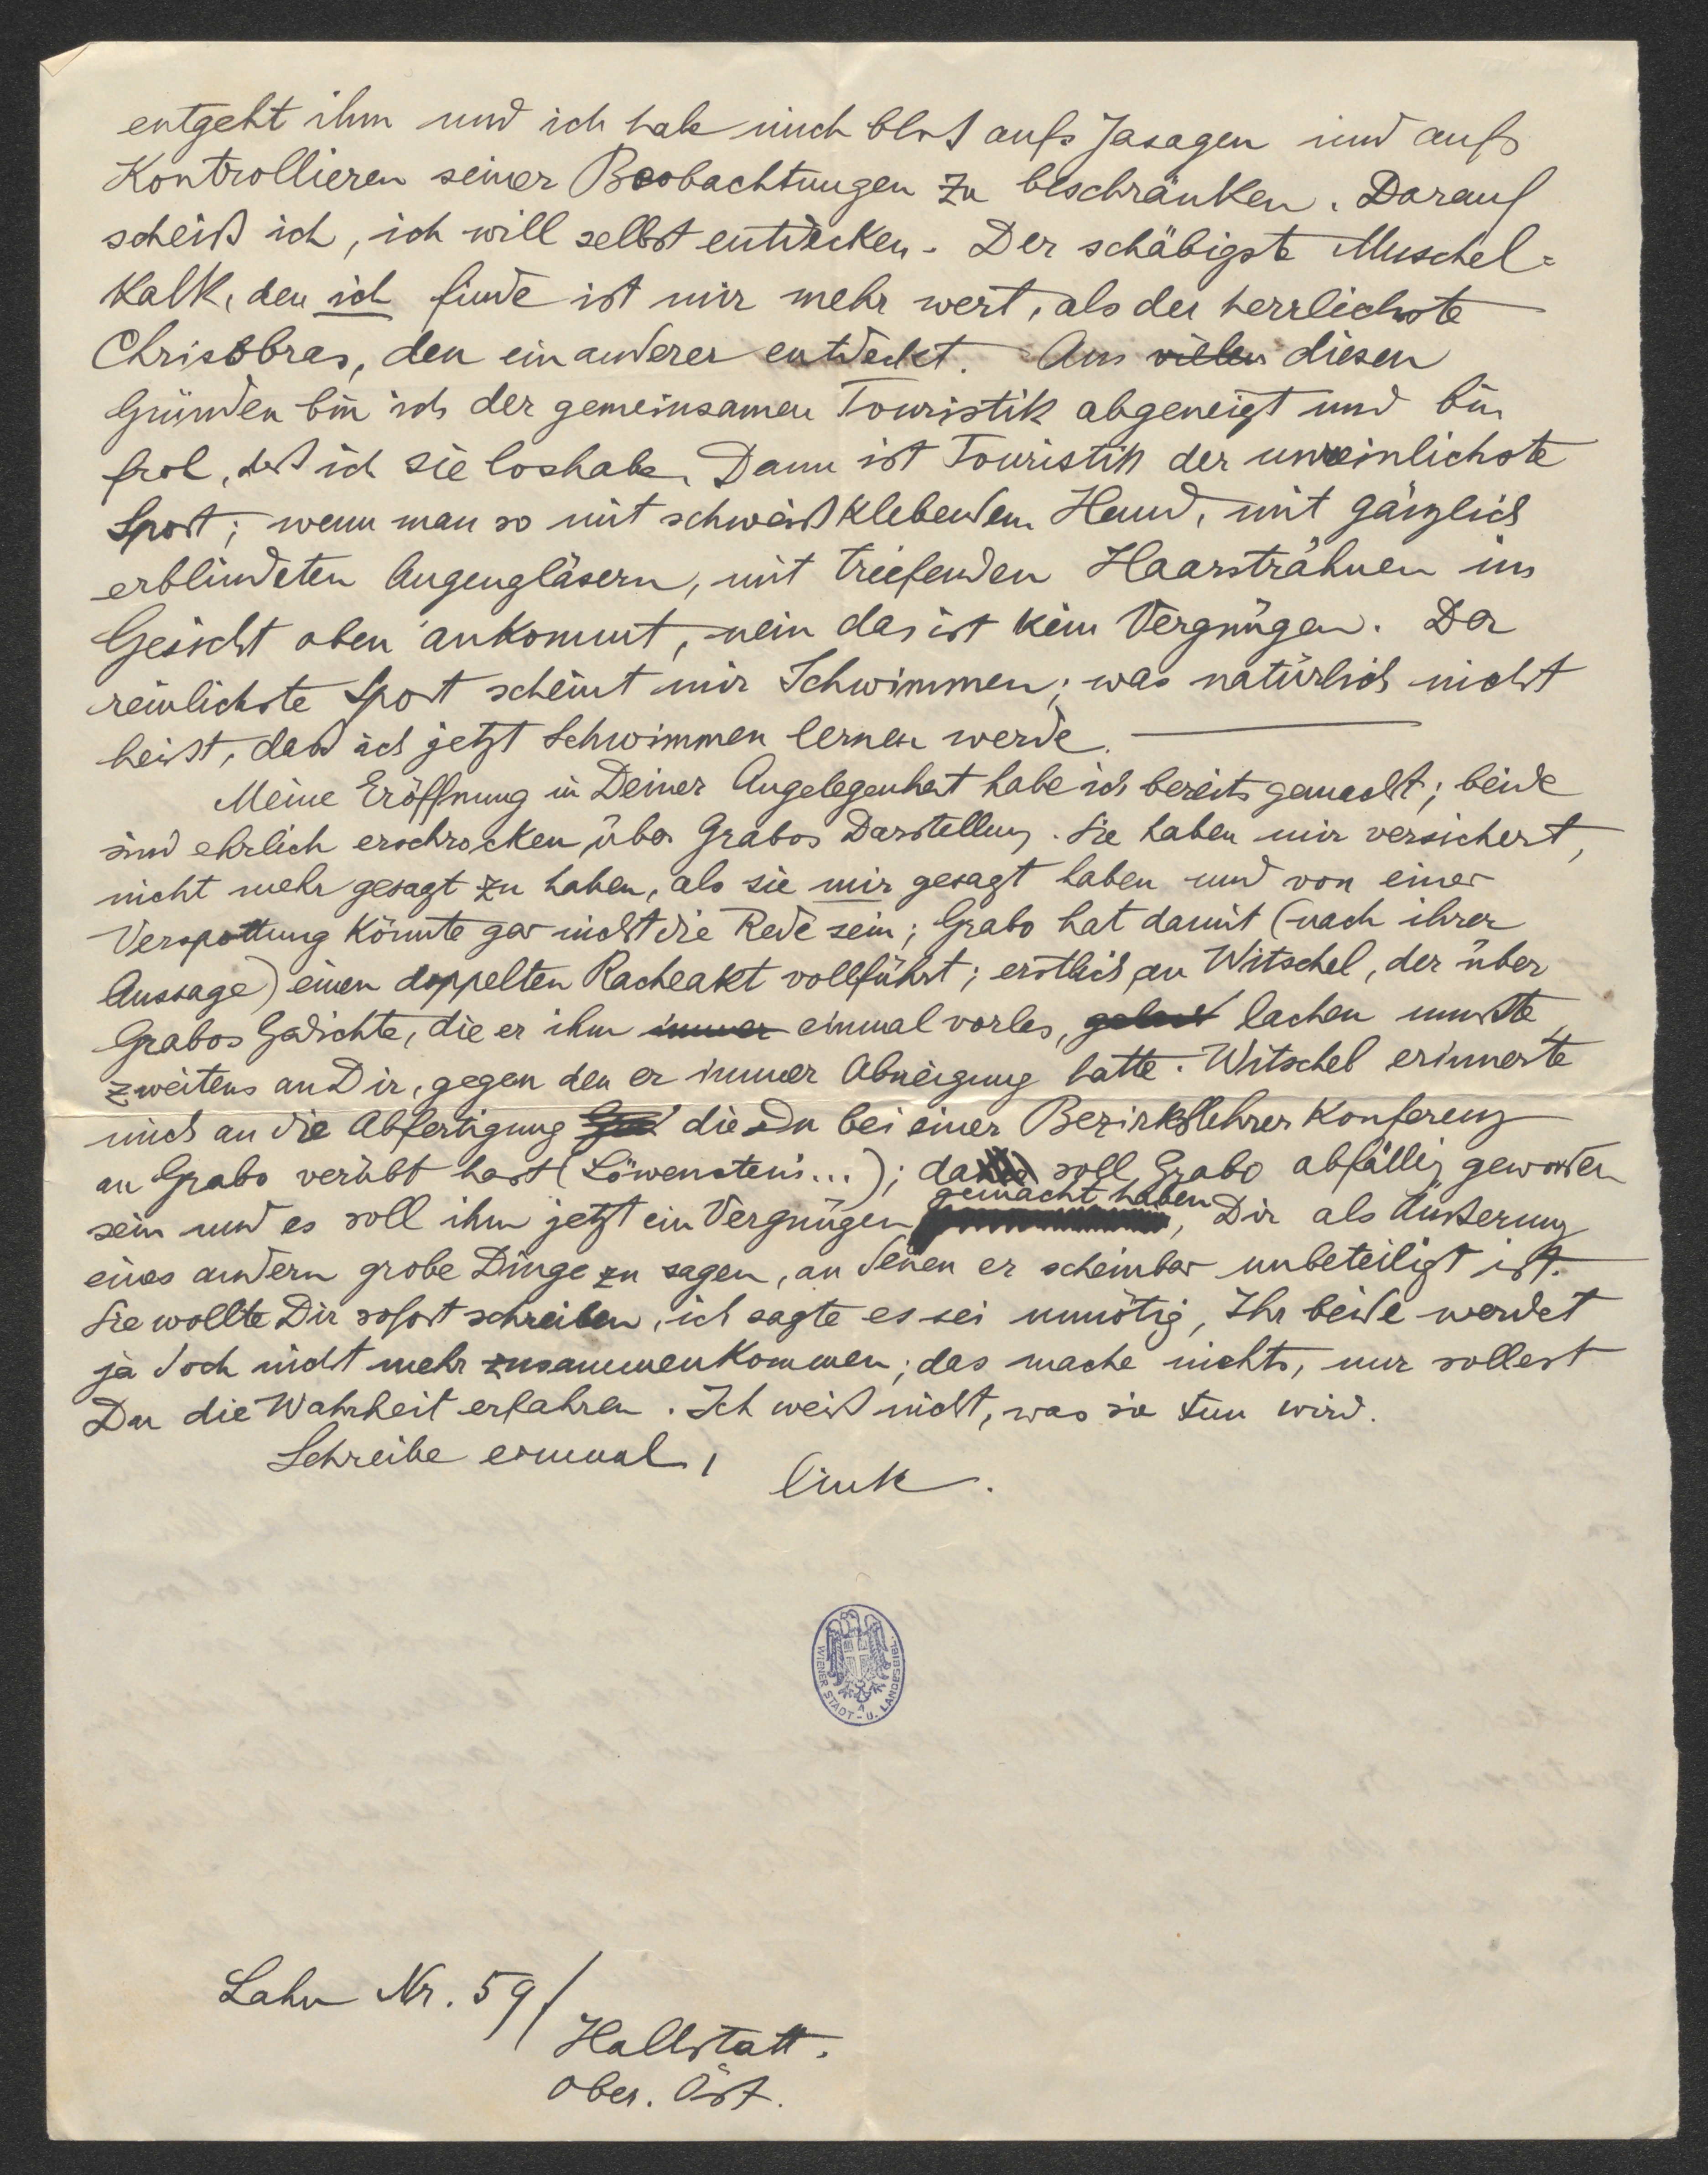 entgeht ihm und ich habe mich bloß aufs Jasagen und aufs
Kontrollieren seiner Beobachtungen zu beschränken. Darauf
scheiß ich, ich will selbst entdecken. Der schäbigste Muschel=
kalk, den ich finde ist mir mehr wert, als der herrlichste
den ein anderer entdeckt. Aus vielen diesen
Gründen bin ich der gemeinsamen Touristik abgeneigt und bin
froh, daß ich sie loshabe. Dann ist Touristik der unreinlichste
Sport; wenn man so mit schweißklebendem Hemd, mit gänzlich
erblindeten Augengläsern, mit triefenden Haarsträhnen im
Gesicht oben ankommt, nein das ist kein Vergnügen. Der
reinlichste Sport scheint mir Schwimmen; was natürlich nicht
heißt, daß ich jetzt Schwimmen lernen werde. —
Meine Eröffnung in Deiner Angelegenheit habe ich bereits gemacht; beide
sind ehrlich erschrocken über Grabos Darstellung. Sie haben mir versichert,
nicht mehr gesagt zu haben, als sie mir gesagt haben und von einer
Verspottung könnte gar nicht die Rede sein; Grabo hat damit (nach ihrer
Aussage) einen doppelten Racheakt vollführt; erstlich an Witschel, der über
Grabos Gedichte, die er ihm immer einmal vorlas, gelacht lachen mußte,
zweitens an Dir, gegen den er immer Abneigung hatte. Witschel erinnerte
mich an die Abfertigung die Du bei einer Bezirkslehrer Konferenz
an Grabo verübt hast (Löwenstein...); da soll Grabo abfällig geworden
sein und es soll ihm jetzt ein Vergnügen gemacht haben, Dir als Äußerung
eines andern grobe Dinge zu sagen, an denen er scheinbar unbeteiligt ist.
Sie wollte Dir sofort schreiben, ich sagte es sei unnötig, Ihr beide werdet
ja doch nicht mehr zusammenkommen; das mache nichts, nur sollest
Du die Wahrheit erfahren. Ich weiß nicht, was sie tun wird.
Schreibe einmal,
Link.
WIENER STADT- U. LANDESBIBL.
Lahn Nr. 59/
Hallstatt.
Ober. Öst.